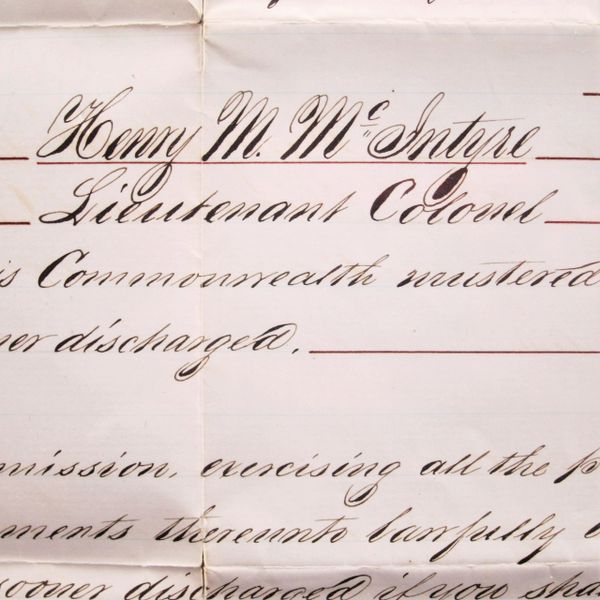 Henry M. McIntyre
Lieutenant Colonel
is Commonwealth mustered
ner discharged.
mission, exercising all the p
ments thereunto lawfully
sooner discharged if you sha